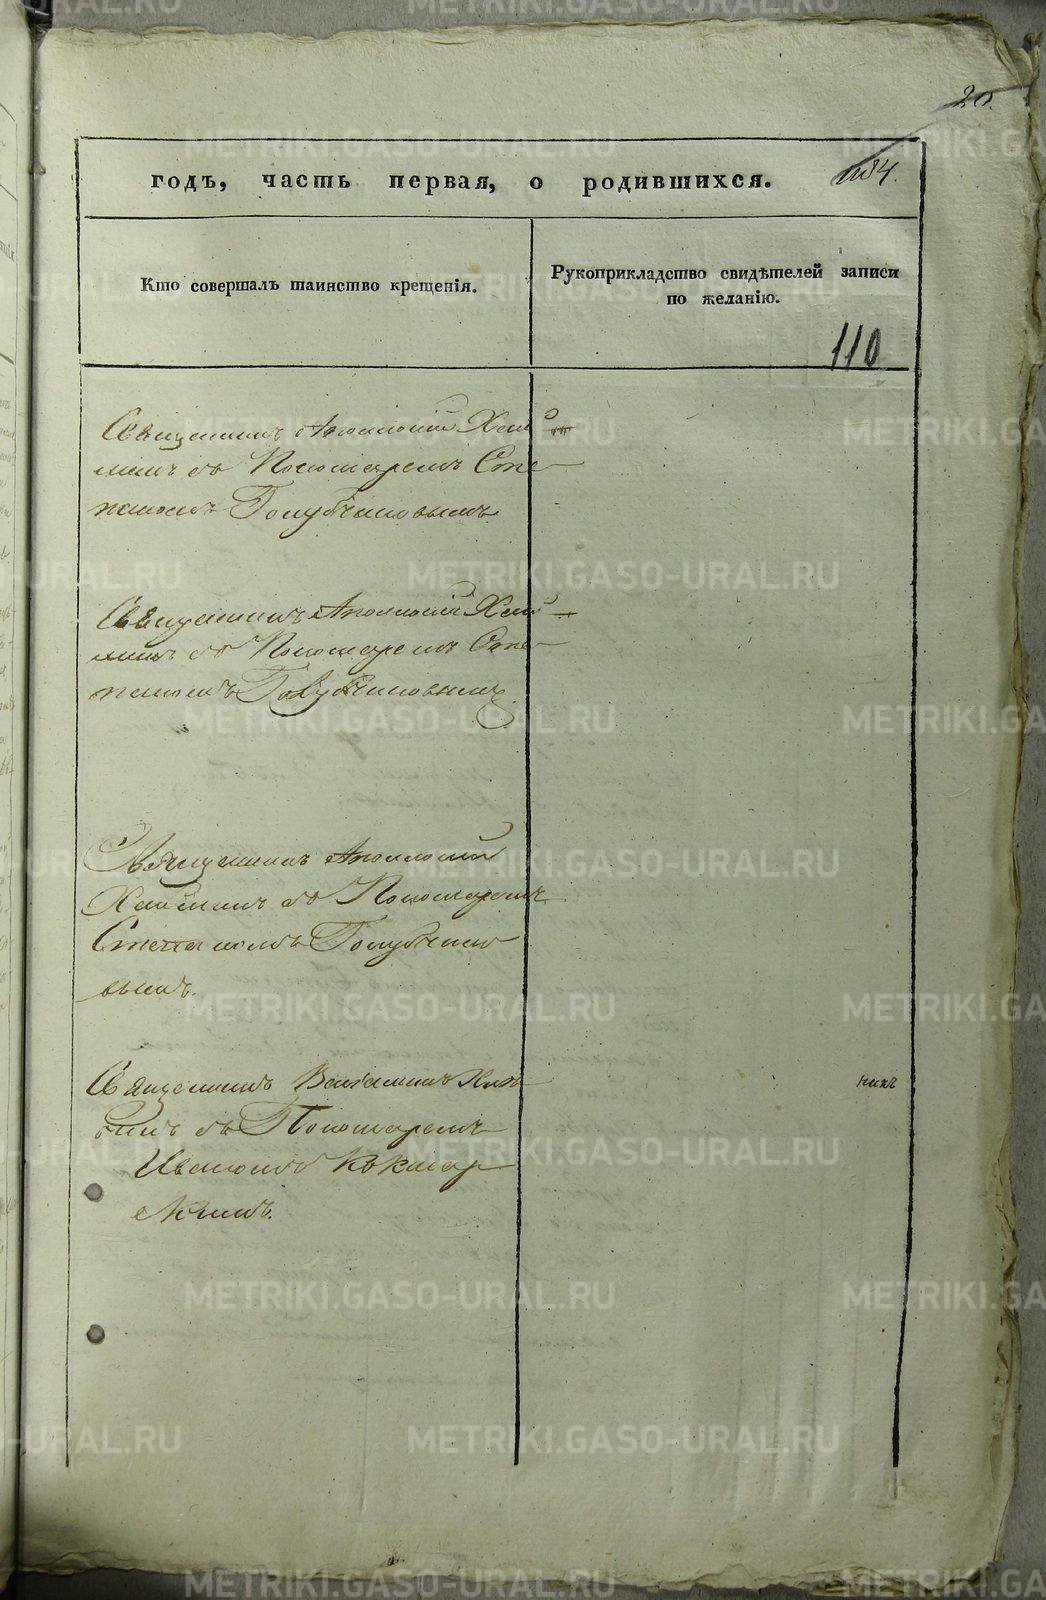 20.
годъ, часть первая, о родившихся.
184.
Кто совершалъ таинство крещенія.
Рукоприкладство свидѣтелей записи
по желанію.
110
Священникъ Аполлоній
съ Пономаремъ Сте-
паномъ Голубчиковымъ
Священникъ Аполлоній
съ Пономаремъ Сте-
паномъ Голубчиковымъ
Священникъ Аполлоній
съ Пономаремъ
Степаномъ Голубчико
вымъ.
Священникъ Веніаминъ
съ Пономаремъ
Иваномъ Кокшар
скимъ.
METRIKI.GASO-URAL.RU